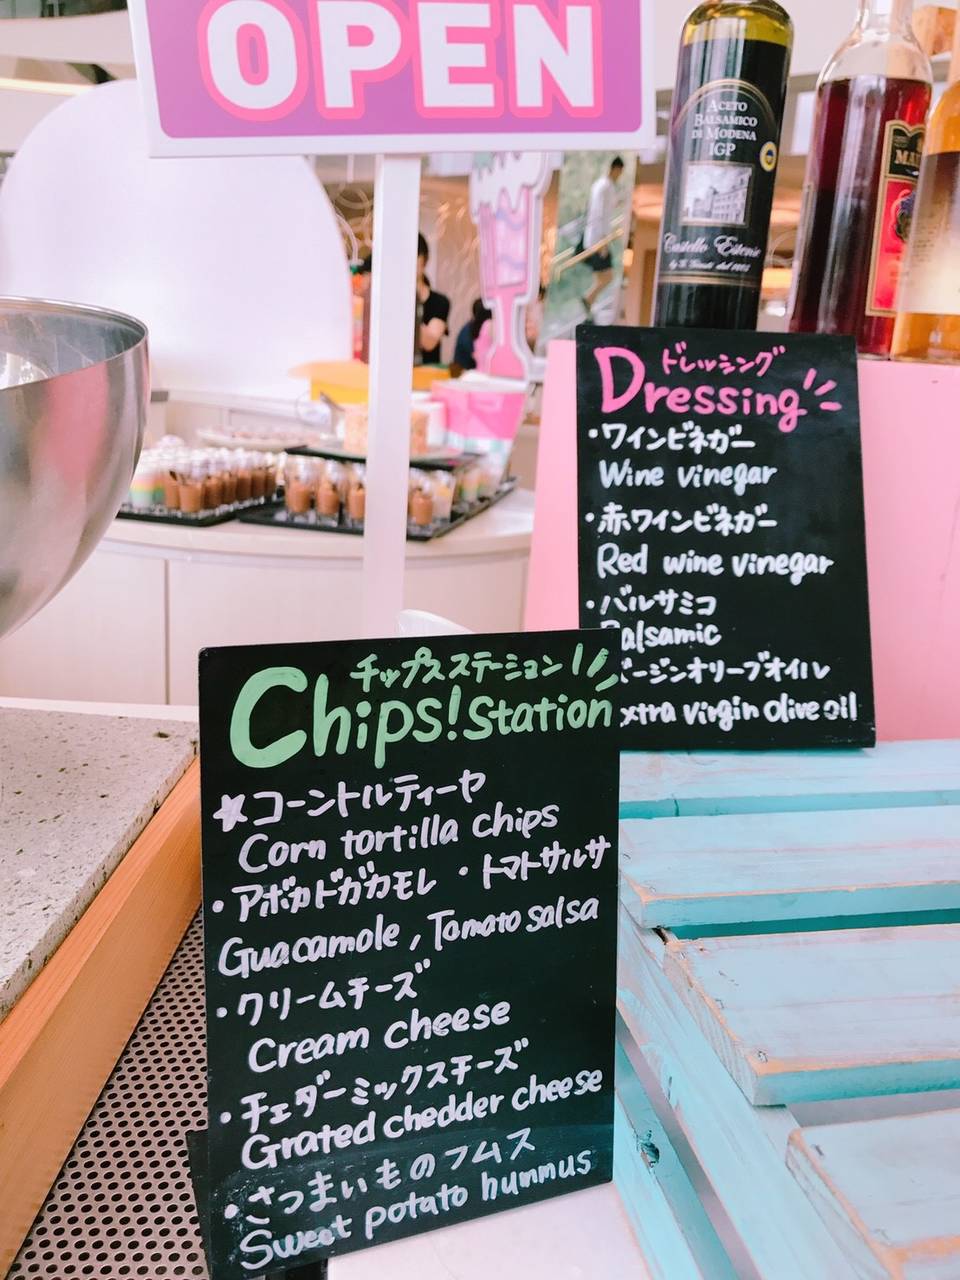 OPEN
ACETO
BALSAMICO
DI MODENA
IGP
Castello Estense
ドレッシング
Dressing
・ワインビネガー
Wine vinegar
・赤ワインビネガー
Red wine vinegar
・バルサミコ
Balsamic
ージンオリーブオイル
xtra virgin olive oil
チップスステーション
Chips! Station
☆コーントルティーヤ
Corn tortilla chips
・アボカドガカモレ ・トマトサルサ
Guacamole, Tomato salsa
・クリームチーズ
Cream cheese
・チェダーミックスチーズ
Grated chedder cheese
・さつまいものフムス
Sweet potato hummus